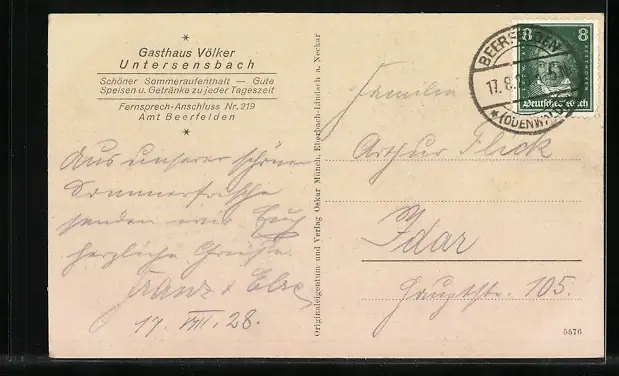 *
Gasthaus Völker
Untersensbach
Schöner Sommeraufenthalt — Gute
Speisen u. Getränke zu jeder Tageszeit
Fernsprech-Anschluss Nr. 219
Amt Beerfelden
*
Aus unserer schönen
Sommerfrische
senden wir Euch
herzliche Grüße.
Franz & Else
17. VIII. 28.
Originaleigentum und Verlag Oskar Münch, Eberbach-Lindach a. Neckar
8 8
Deutsches Reich
BEERFELDEN
17.8.
* (ODENWALD)
Familie
Arthur Flick
Idar
Hauptstr. 105.
5576